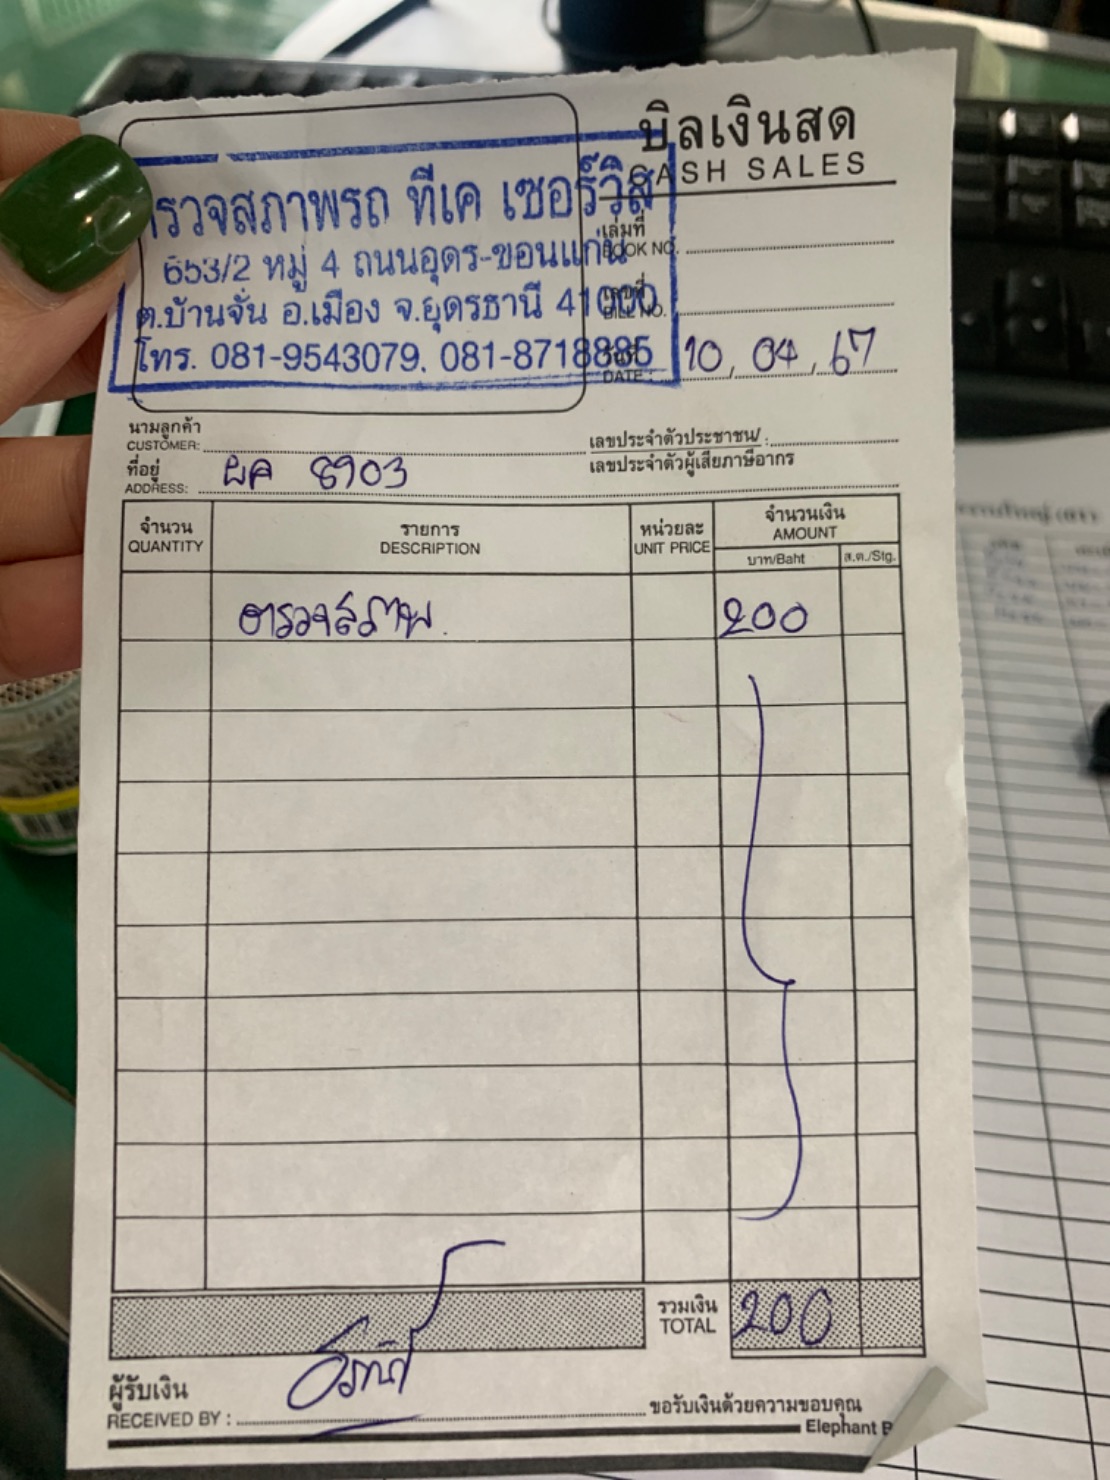 บิลเงินสด
CASH SALES
ตรวจสภาพรถ ทีเค เซอร์วิส
653/2 หมู่ 4 ถนนอุดร-ขอนแก่น
ต.บ้านจั่น อ.เมือง จ.อุดรธานี 41000
โทร. 081-9543079. 081-8718885
เล่มที่
BOOK NO.
เลขที่
BILL NO.
วันที่
DATE : 10, 04, 67
นามลูกค้า
CUSTOMER:
เลขประจำตัวประชาชน/ :
เลขประจำตัวผู้เสียภาษีอากร
ที่อยู่
ADDRESS: 8903
จำนวน รายการ หน่วยละ จำนวนเงิน
QUANTITY DESCRIPTION UNIT PRICE AMOUNT
บาท/Baht ส.ต./Stg.
ตรวจสภาพ 200
รวมเงิน
TOTAL 200
ผู้รับเงิน
RECEIVED BY :
ขอรับเงินด้วยความขอบคุณ
Elephant